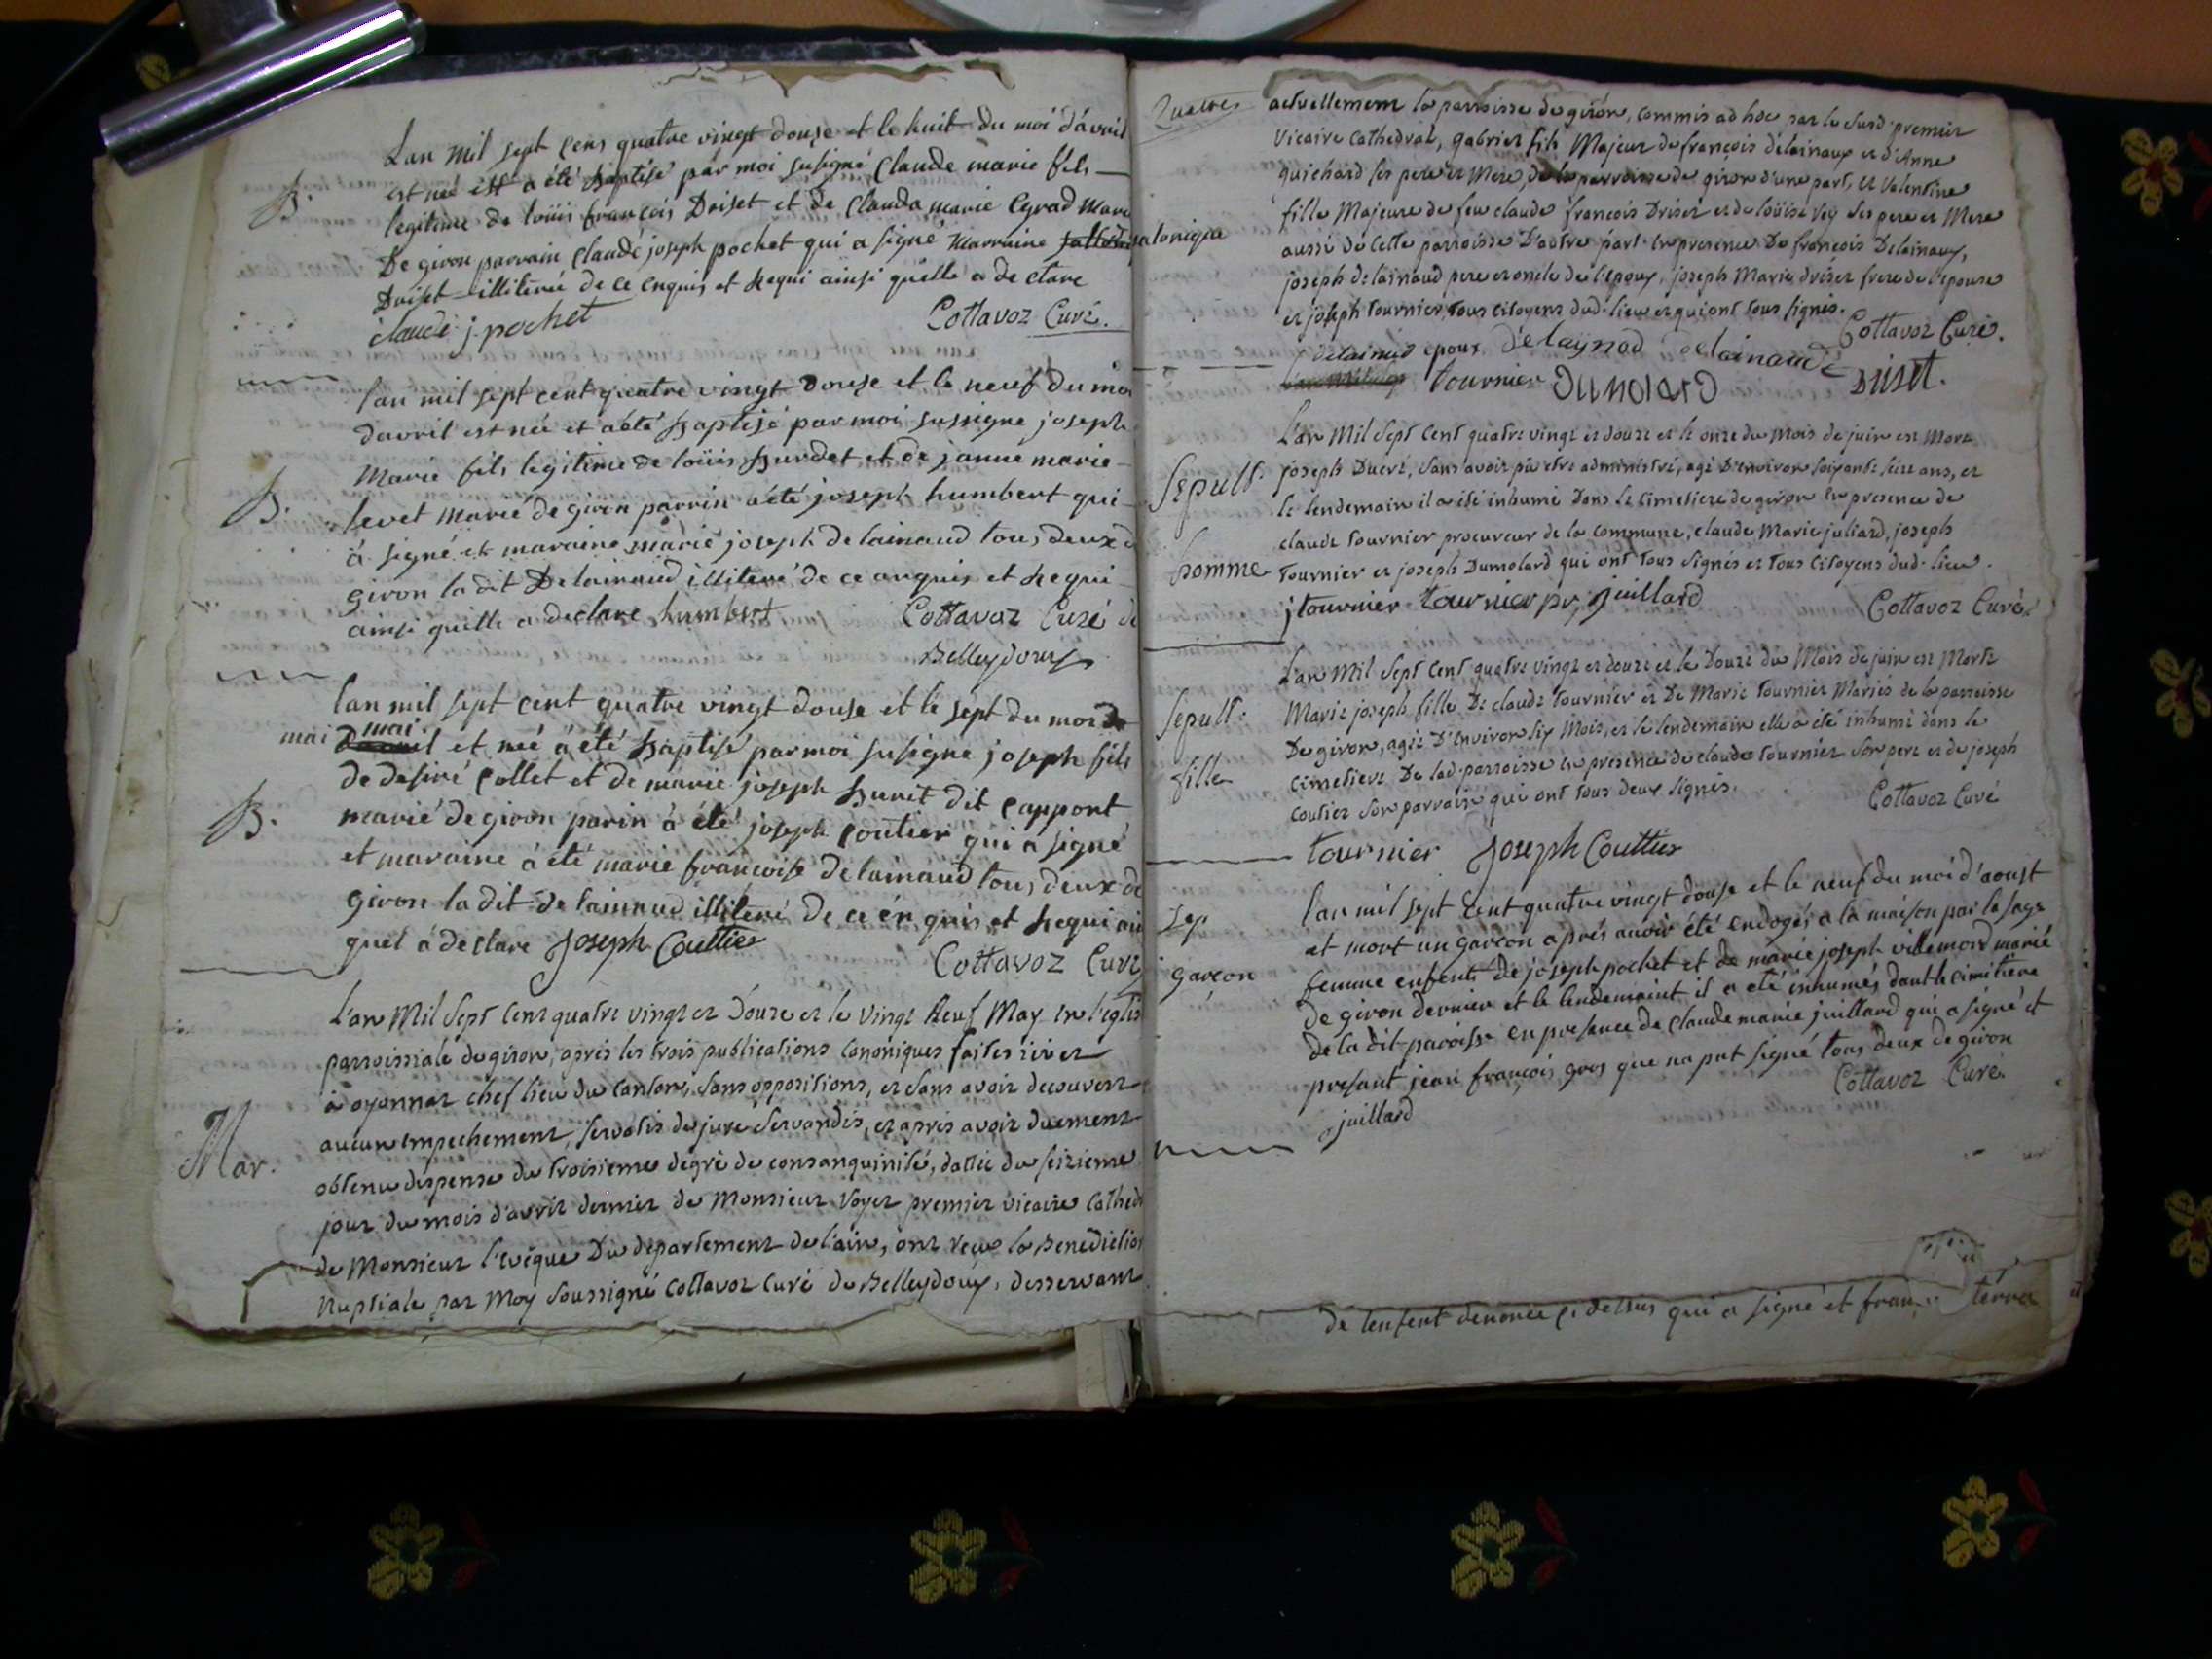 Lan mil sept cens quatre vingt douze et le huit du moi d'avril
B. est né et a été baptisé par moi susigné Claude marie fils
legitime de loüis françois Driset et de Clauda marie Cyrad
De giron parrain Claude joseph pochet qui a signé Marraine
Driset illiterée de ce enquis et requi ainsi quelle a de clare
claude j. pochet Cottavoz Curé.
lan mil sept cent quatre vingt douze et le neuf du moi
davril est née et a été baptisé par moi sussigne joseph
marie fils legitime de loüis burdet et de janne marie
B. levet marié de giron parrin a été joseph humbert qui
à signé et maraine marie joseph delainaud tous deux
giron la dit Delainaud illiteré de ce anquis et requi
ainsi quelle a declare humbert Cottavoz Curé de
Belleydoux
lan mil sept cent quatre vingt douse et le sept du moi de
mai mai et neé à été baptisé par moi susigne joseph fils
de desiré Collet et de marie joseph buret dit Cappont
B. marié de giron parin à été joseph Coutier qui a signé
et maraine à été marie françoise Delainaud tous deux de
giron la dit de lainaud illiteré de ce én quis et requi
quel á declare Joseph Couttier
Cottavoz Curé
L'an Mil Sept Cent quatre vingt et Douze et le Vingt Neuf May en l'eglise
parroissiale de giron, après les trois publications canoniques faites ici et
à oyonnaz chef lieu du Canton, sans oppositions, et sans avoir decouvert
aucun empechement, servatis de jure servandis, et après avoir duement
Mar. obtenu dispense du troisieme degré de consanguinité, dattée du seizieme
jour du mois d'avril dernier de Monsieur Voyer premier vicaire Cathed
de Monsieur l'eveque Du departement de l'ain, ont reçu la Benediction
Nuptiale par Moy Soussigné Cottavoz Curé de Belleydoux, desservant
actuellement la parroisse de giron, commis ad hoc par le Susd. premier
Vicaire Cathedral, gabriel fils Majeur de françois délainaux et d'Anne
guichard ses pere et Mere, de la parroisse de giron d'une part, et Valentine
fille Majeure de feu claude françois Driset et de loüise Vey ses pere et Mere
aussi de Cette parroisse D'autre part. en presence De françois Delainaux,
joseph delainaud pere et oncle de l'epoux, joseph Marie driset frere de l'epouse
et joseph tournier, tous citoyens dud. lieu et qui ont tous signés.
Cottavoz Curé.
delainaud epoux delaynod delainaud
tournier dumolard Driset.
L'an Mil Sept Cent quatre vingt et douze et le onze du mois de juin est Mort
Sepult. joseph Ducré, sans avoir pu etre administré, agé D'environ soixante seize ans, et
le lendemain il a été inhumé Dans le cimetiere de giron en presence de
claude tournier procureur de la commune, claude Marie juliard, joseph
homme tournier et joseph Dumolard qui ont tous signés et tous citoyens dud. lieu.
j tournier tournier pr, juillard Cottavoz Curé.
L'an Mil Sept Cent quatre vingt et douze et le Douze du Mois de juin est Morte
Sepult. Marie joseph fille De claude tournier et De Marie tournier Mariés de la parroisse
De giron, agée D'environ six Mois, et le lendemain elle a été inhumé dans le
fille cimetiere De lad. parroisse en presence de claude tournier son pere et de joseph
coutier son parrain qui ont tous deux signés. Cottavoz Curé
tournier Joseph Couttier
lan mil sept cent quatre vingt douse et le neuf du moi d'aoust
Sep et mort un garcon aprés avoir été endogés a la maison par la sage
garçon femme enfent de joseph pochet et de marie joseph villemord marié
de giron dernier et le lendemaint il a eté inhumés dant le cimitière
de la dit paroisse en presence de Claude marie juillard qui a signé et
presant jean françois gros que na put signé tous deux de giron
Cottavoz Curé.
juillard
de lenfent denoncé ci dessus qui a signé et